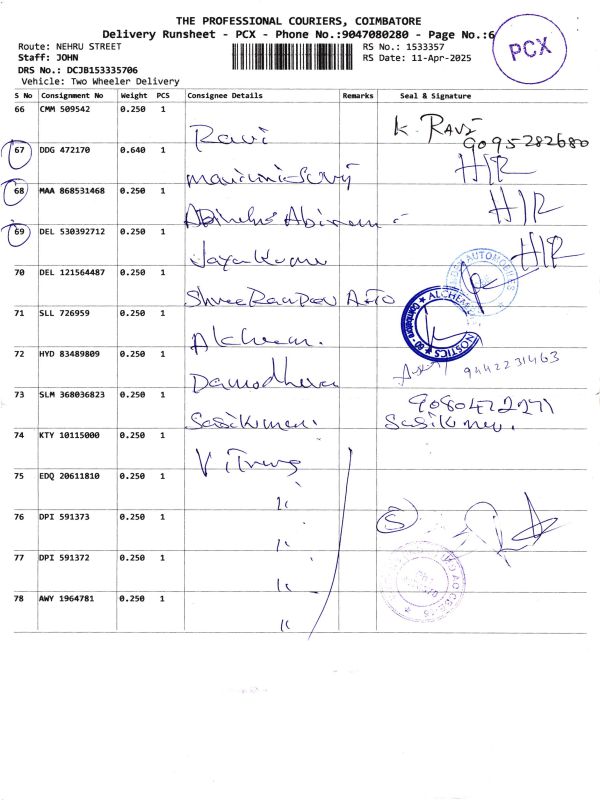 THE PROFESSIONAL COURIERS, COIMBATORE
Delivery Runsheet - PCX - Phone No.:9047080280 - Page No.:6
PCX
Route: NEHRU STREET
RS No.: 1533357
Staff: JOHN
RS Date: 11-Apr-2025
DRS No.: DCJB153335706
Vehicle: Two Wheeler Delivery
S No Consignment No Weight PCS Consignee Details Remarks Seal & Signature
66 CMM 509542 0.250 1 Ravi K. RAVI
9095282680
67 DDG 472170 0.640 1 H/R
68 MAA 868531468 0.250 1 H/R
69 DEL 530392712 0.250 1 Jaya Kumar H/R
70 DEL 121564487 0.250 1 Shree Ramdev Auto
AUTOMOBILES
71 SLL 726959 0.250 1
72 HYD 83489809 0.250 1 Damodharan 9442231463
73 SLM 368036823 0.250 1 Sasikumar. 9080472271
Sasikumar.
74 KTY 10115000 0.250 1
75 EDQ 20611810 0.250 1 "
76 DPI 591373 0.250 1 " 5
77 DPI 591372 0.250 1 "
78 AWY 1964781 0.250 1 "